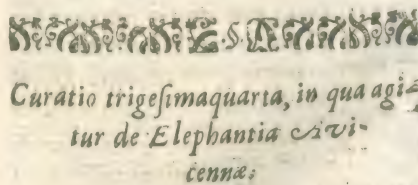 Curatio trigeſimaquarta, in qua agi-
tur de Elephantia Avi-
cennæ;